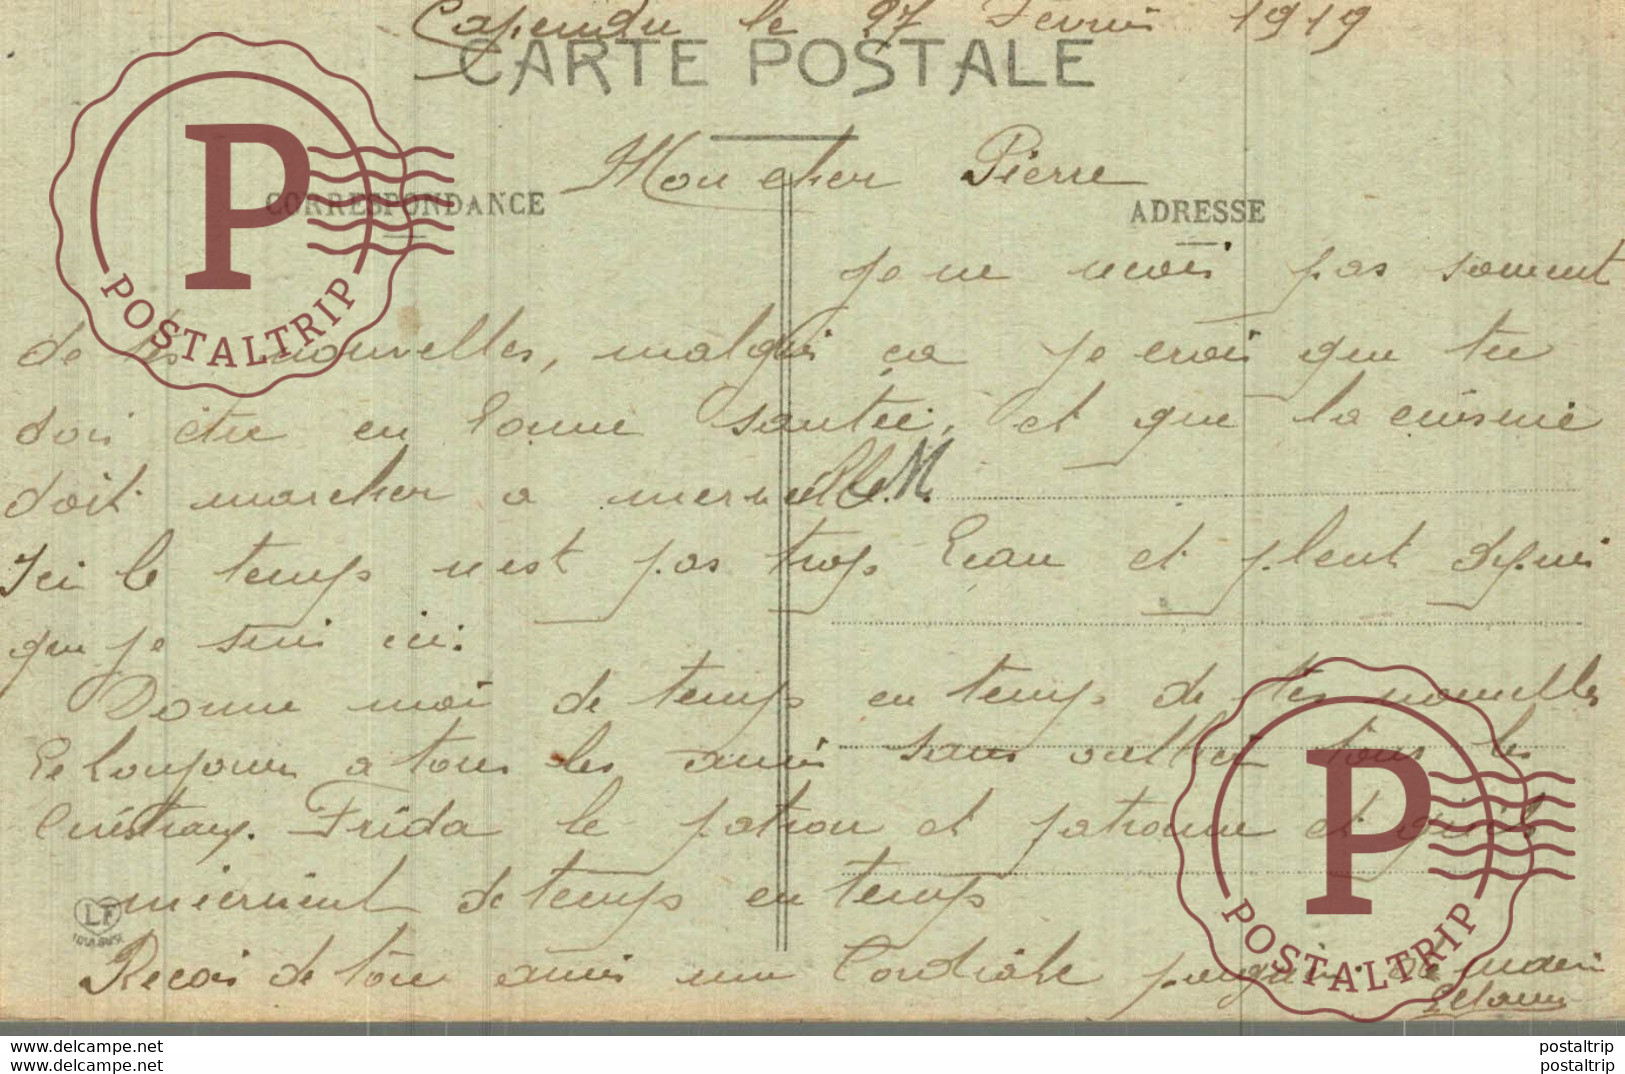 Capendu le 27 Février 1919
CARTE POSTALE
Mon cher Pierre
CORRESPONDANCE
ADRESSE
je ne recois pas souvent
de tes nouvelles, malgrés ça je crois que tu
dois être en bonne santée, et que la cuisine
doit marcher a merveille.
Ici le temps n'est pas trop beau et pleut depuis
que je suis ici.
Donne moi de temps en temps de tes nouvelles
toujours a tous les amis sans oublier tous les
Frida le patron et patronne et
de temps en temps
Recois de ton amis une Cordiale
P
POSTALTRIP
P
POSTALTRIP
LF
TOULOUSE
www.delcampe.net
postaltrip
www.delcampe.net
postaltrip